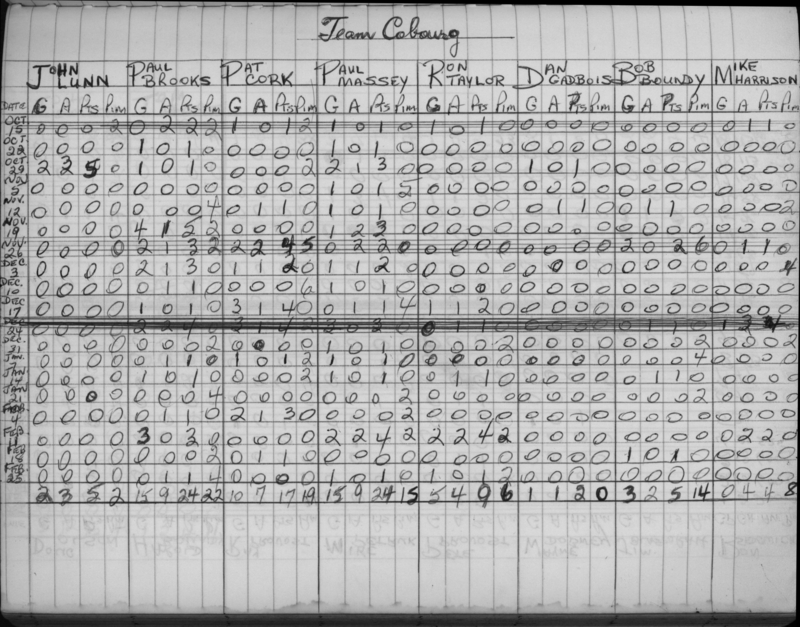 Team Cobourg
JOHN LUNN PAUL BROOKS PAT CORK PAUL MASSEY RON TAYLOR DAN GADBOIS BOB BOUNDY MIKE HARRISON
DATE G A Pts Pim G A Pts Pim G A Pts Pim G A Pts Pim G A Pts Pim G A Pts Pim G A Pts Pim G A Pts Pim
OCT 15 0 0 0 2 0 2 2 2 1 0 1 2 1 0 1 0 1 0 1 0 0 0 0 0 0 0 0 0 0 1 1 0
OCT 22 0 0 0 0 1 0 1 0 0 0 0 0 1 0 1 0 0 0 0 0 0 0 0 0 0 0 0 0 0 0 0 0
OCT 29 2 3 5 0 1 0 1 0 0 0 0 2 2 1 3 0 0 0 0 0 1 0 1 0 0 0 0 0 0 0 0 0
NOV 5 0 0 0 0 0 0 0 0 0 0 0 0 1 0 1 5 0 0 0 0 0 0 0 0 0 0 0 0 0 0 0 0
NOV. 12 0 0 0 0 0 0 0 4 0 1 1 0 1 0 1 0 0 0 0 0 0 1 1 0 0 1 1 0 0 0 0 2
NOV. 19 0 0 0 0 4 1 5 2 0 0 0 0 1 2 3 0 0 0 0 0 0 0 0 0 0 0 0 0 0 0 0 0
NOV. 26 0 0 0 0 2 1 3 2 2 2 4 5 0 2 2 0 0 0 0 0 0 0 0 0 2 0 2 6 0 1 1 0
DEC 3 0 0 0 0 2 1 3 0 1 1 2 0 1 1 2 0 0 0 0 0 0 0 0 0 0 0 0 0 0 0 0 4
DEC. 10 0 0 0 0 0 1 1 0 0 0 0 6 1 0 1 0 0 0 0 0 0 0 0 0 0 0 0 0 0 0 0 0
DEC 17 0 0 0 0 1 0 1 0 3 1 4 0 0 1 1 4 1 1 2 0 0 0 0 0 0 0 0 0 0 0 0 0
DEC. 31 0 0 0 0 0 0 0 2 0 0 0 0 0 0 0 0 0 0 0 2 0 0 0 0 0 0 0 2 0 0 0 2
JAN. 0 0 0 0 0 1 1 0 1 0 1 2 1 0 1 0 0 0 0 0 0 0 0 0 0 0 0 4 0 0 0 0
JAN 14 0 0 0 0 1 0 1 0 0 0 0 2 1 0 1 0 0 1 1 0 0 0 0 0 0 1 1 0 0 0 0 0
JAN 21 0 0 0 0 0 0 0 4 0 0 0 0 0 0 0 2 0 0 0 0 0 0 0 0 0 0 0 2 0 0 0 0
FEB 4 0 0 0 0 0 1 1 0 2 1 3 0 0 0 0 2 0 0 0 0 0 0 0 0 0 0 0 0 0 0 0 0
FEB. 11 0 0 0 0 3 0 3 0 0 0 0 0 2 2 4 2 2 2 4 2 0 0 0 0 0 0 0 0 0 2 2 0
FEB 18 0 0 0 0 0 0 0 2 0 1 1 0 0 0 0 0 0 0 0 0 0 0 0 0 1 0 1 0 0 0 0 0
FEB 25 0 0 0 0 0 1 1 4 0 0 0 0 1 0 1 0 1 0 1 2 0 0 0 0 0 0 0 0 0 0 0 0
2 3 5 2 15 9 24 22 10 7 17 19 15 9 24 15 5 4 9 6 1 1 2 0 3 2 5 14 0 4 4 8